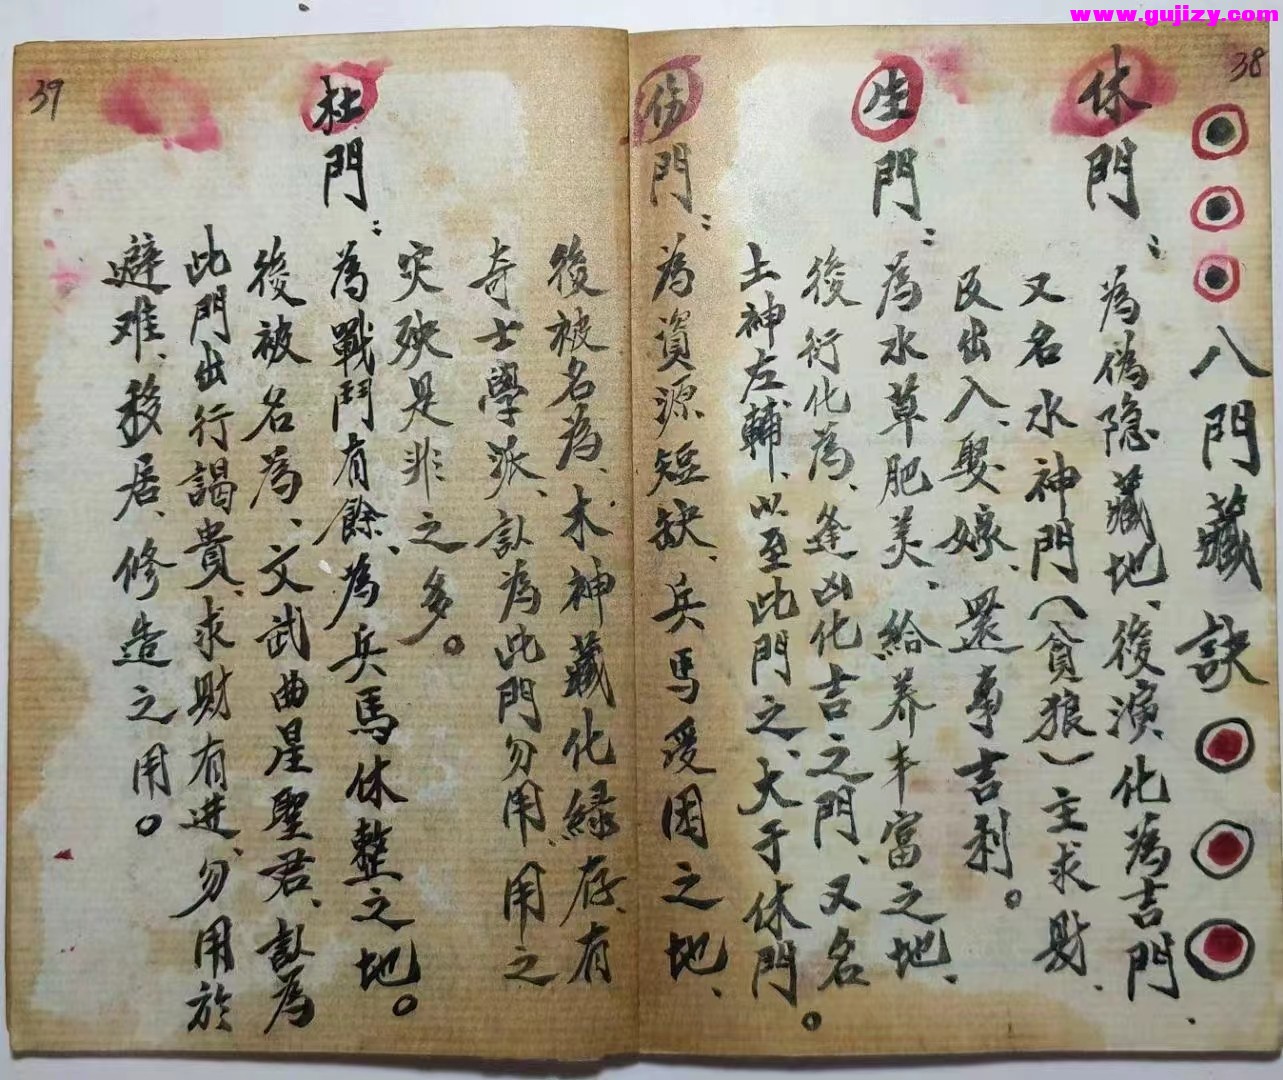 www.gujizy.com
38
八門藏訣
休門：為偽隐藏地、後演化為吉門、
又名水神門（貪狼）主求财、
及出入、娶嫁、還事吉利。
生門：為水草肥美、給养丰富之地、
後衍化為、逢凶化吉之門、又名
土神左輔、以至此門之、大于休門。
伤門：為資源短缺、兵馬受困之地、
後被名為、木神藏化緑存、有
奇士學派、訁為此門勿用、用之
灾殃是非之多。
杜門：為戰鬥有餘、為兵馬休整之地。
後被名為、文武曲星聖君、訁為
此門出行謁貴、求财有进、勿用於
避难、移居、修造之用。
39